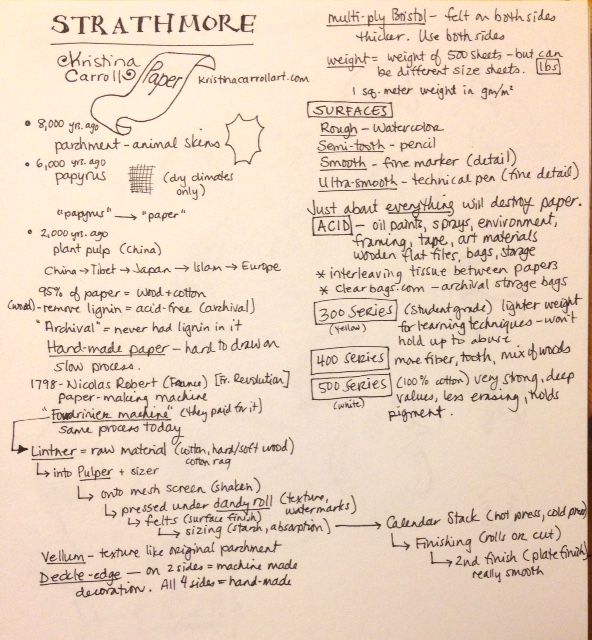 STRATHMORE
Kristina
Carroll
Paper
kristinacarrollart.com
• 8,000 yrs. ago
parchment - animal skins
• 6,000 yrs. ago
papyrus (dry climates
only)
"papyrus" → "paper"
• 2,000 yrs. ago
plant pulp (China)
China → Tibet → Japan → Islam → Europe
95% of paper = wood + cotton
(wood) - remove lignin = acid-free (archival)
"Archival" = never had lignin in it
Hand-made paper - hard to draw on
slow process.
1798 - Nicolas Robert (France) [Fr. Revolution]
paper-making machine
"Foudrinier machine" (they paid for it)
same process today
Lintner = raw material (cotton, hard/soft wood)
cotton rag
↳ into Pulper + sizer
↳ onto mesh screen (shaken)
↳ pressed under dandy roll (texture,
watermarks)
↳ felts (surface finish)
↳ sizing (starch, absorption) → Calendar Stack (hot press, cold press)
↳ Finishing (rolls or cut)
↳ 2nd finish (plate finish)
really smooth
Vellum - texture like original parchment
Deckle-edge - on 2 sides = machine made
decoration. All 4 sides = hand-made
multi-ply Bristol - felt on both sides
thicker. Use both sides
weight = weight of 500 sheets - but can
be different size sheets. lbs
1 sq. meter weight in gm/m²
SURFACES
Rough - Watercolor
Semi-tooth - pencil
Smooth - fine marker (detail)
Ultra-smooth - technical pen (fine detail)
Just about everything will destroy paper.
ACID - oil paints, sprays, environment,
framing, tape, art materials
wooden flat files, bags, storage
* interleaving tissue between papers
* Clearbags.com - archival storage bags
300 SERIES (student grade) lighter weight
(yellow) for learning techniques - won't
hold up to abuse
400 SERIES more fiber, tooth, mix of woods
500 SERIES (100% cotton) very strong, deep
(white) values, less erasing, holds
pigment.